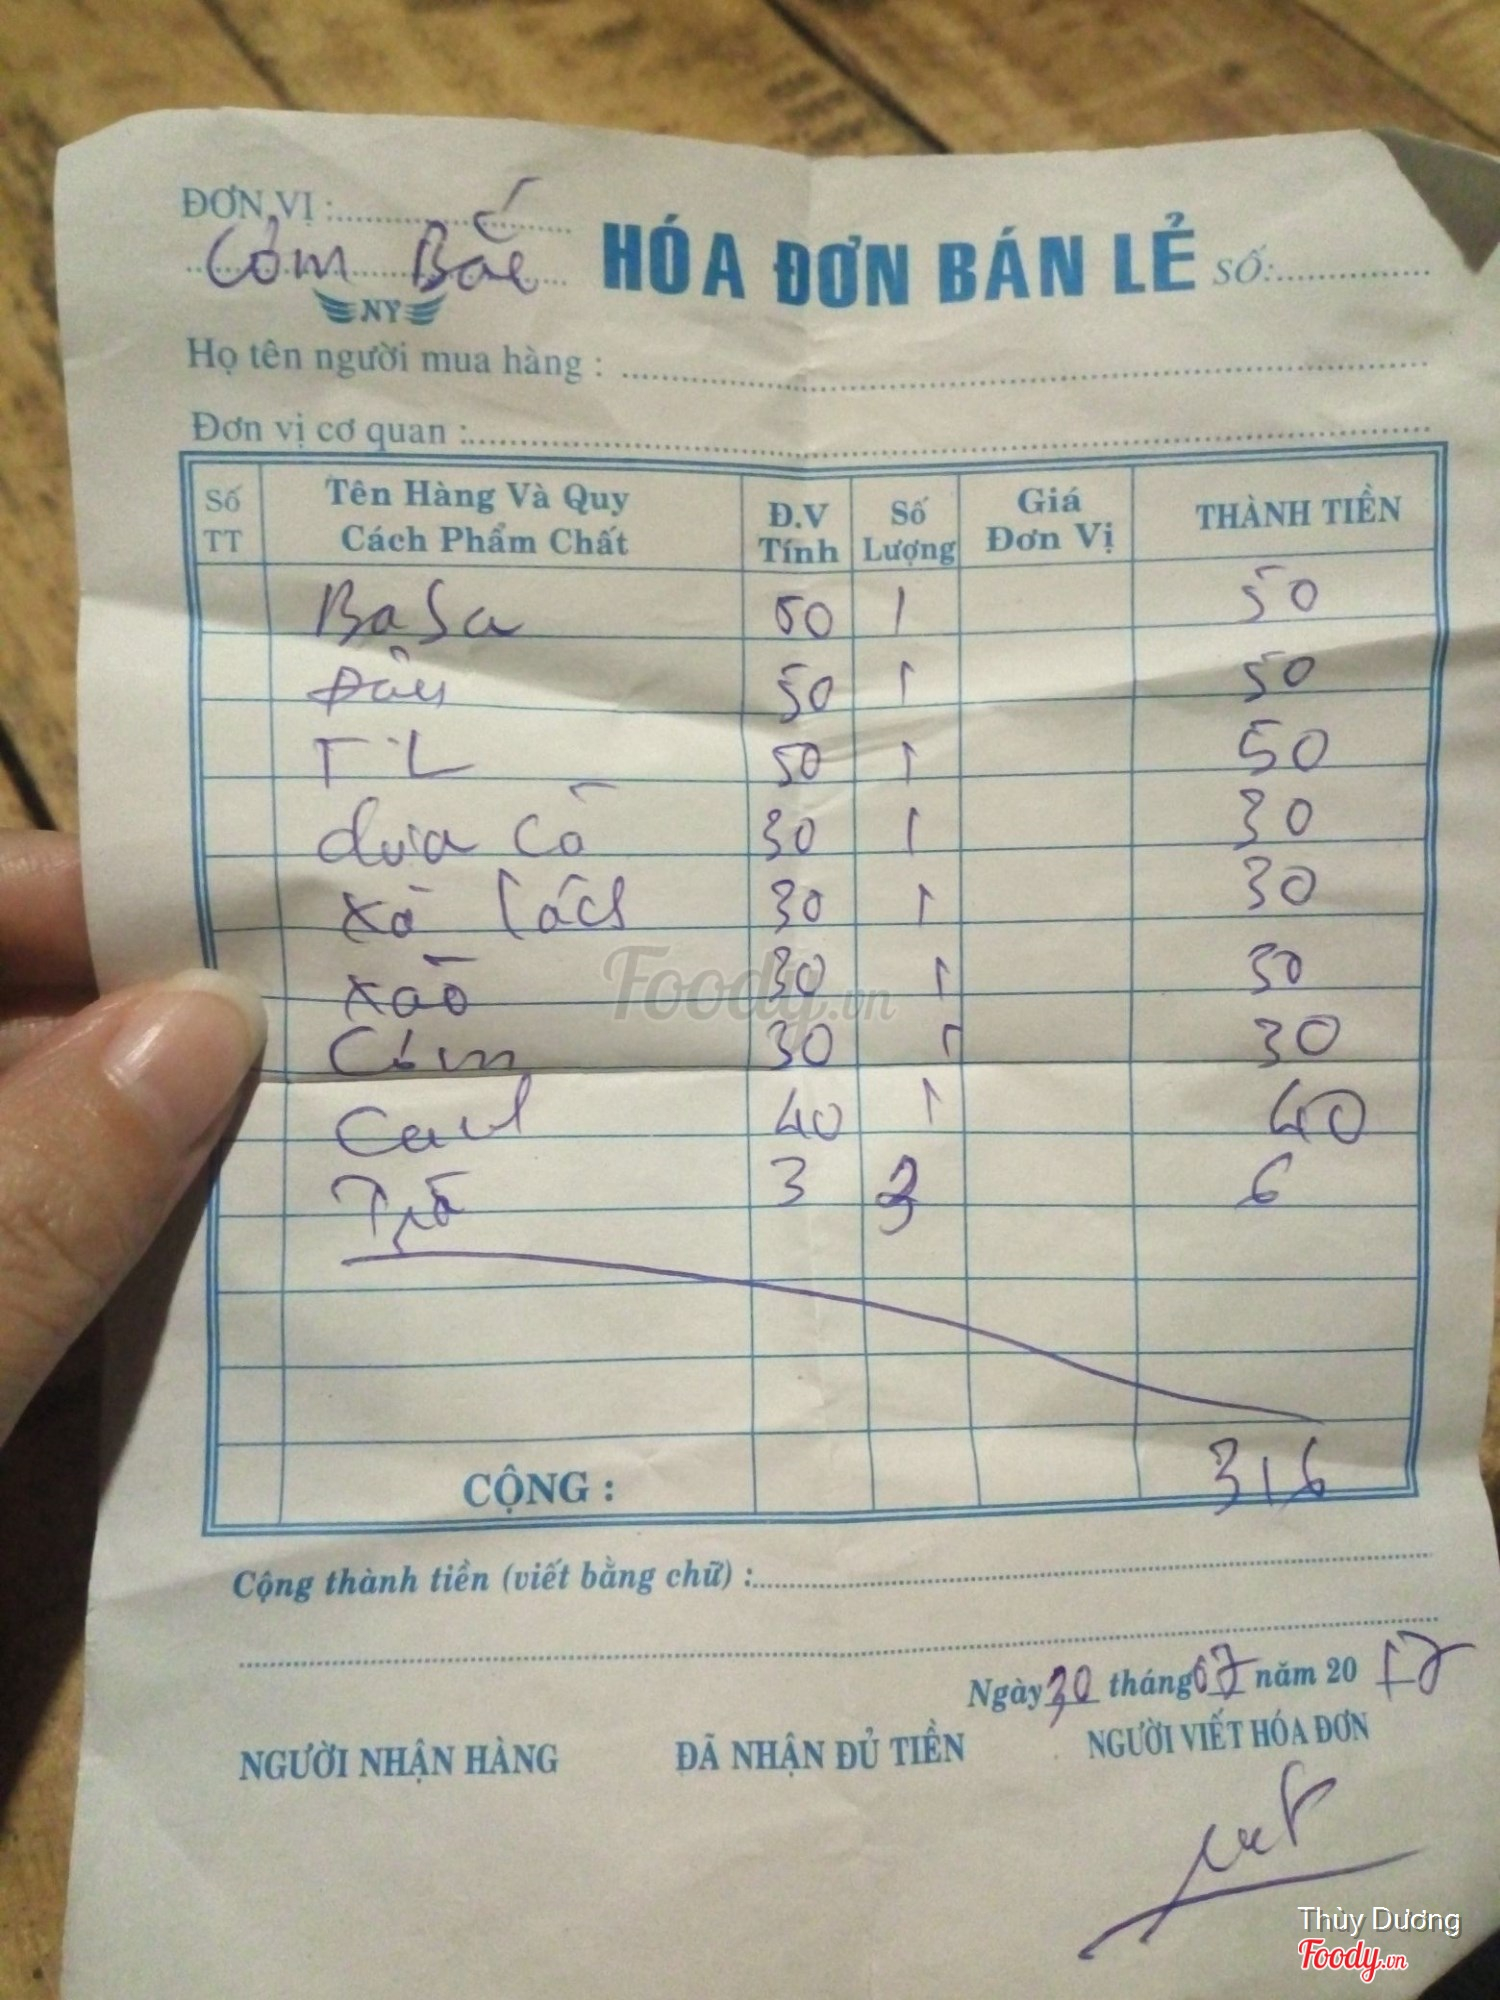 ĐƠN VỊ :
Cơm Bắc
HÓA ĐƠN BÁN LẺ
SỐ:
NY
Họ tên người mua hàng :
Đơn vị cơ quan :
Số TT
Tên Hàng Và Quy Cách Phẩm Chất
Đ.V Tính
Số Lượng
Giá Đơn Vị
THÀNH TIỀN
BaSa 50 1 50
Đậu 50 1 50
TL 50 1 50
dưa cà 30 1 30
xà lách 30 1 30
xào 30 1 30
Cơm 30 1 30
Canh 40 1 40
Trà 3 2 6
CỘNG : 316
Cộng thành tiền (viết bằng chữ) :
Ngày 30 tháng 07 năm 20 17
NGƯỜI NHẬN HÀNG
ĐÃ NHẬN ĐỦ TIỀN
NGƯỜI VIẾT HÓA ĐƠN
Foody.vn
Thùy Dương
Foody.vn